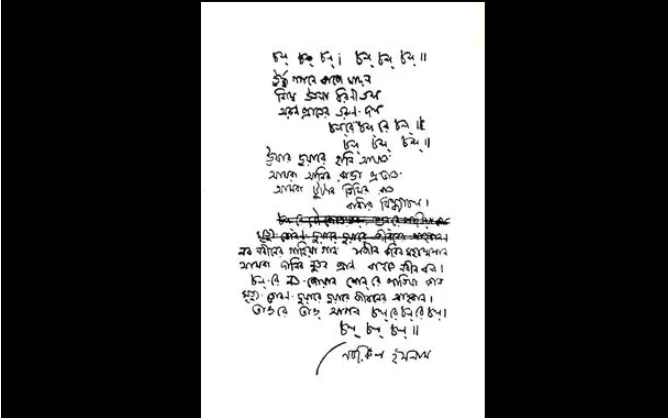 চল্ চল্ চল্। চল্ চল্ চল্॥
ঊর্দ্ধ গগনে বাজে মাদল
নিম্নে উতলা ধরণী তল
অরুণ প্রাতের তরুণ দল
চলরে চল্ রে চল্॥
চল্ চল্ চল্॥
ঊষার দুয়ারে হানি আঘাত
আমরা আনিব রাঙা প্রভাত
আমরা টুটাব তিমির রাত
বাধার বিন্ধ্যাচল।
নব নবীনের গাহিয়া গান সজীব করিব মহাশ্মশান
আমরা দানিব নূতন প্রাণ বাহুতে নবীন বল।
চল্ রে জোয়ান শোন্ রে পাতিয়া কান
মৃত্যু তোরণ দুয়ারে দুয়ারে জীবনের আহ্বান।
ভাঙরে ভাঙ্ আগল চল্ রে চল্ রে চল্।
চল্ চল্ চল্॥
নজরুল ইসলাম